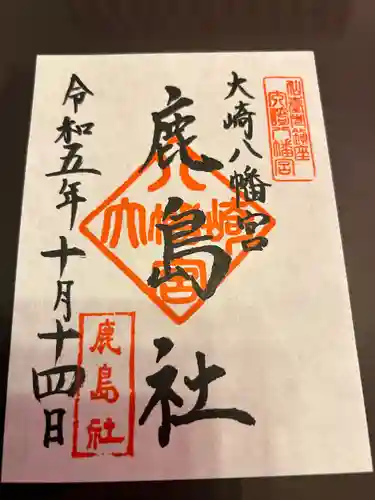 仙臺市鎮座
大崎八幡宮
大崎八幡宮
鹿島社
大崎八幡宮
鹿島社
令和五年十月十四日